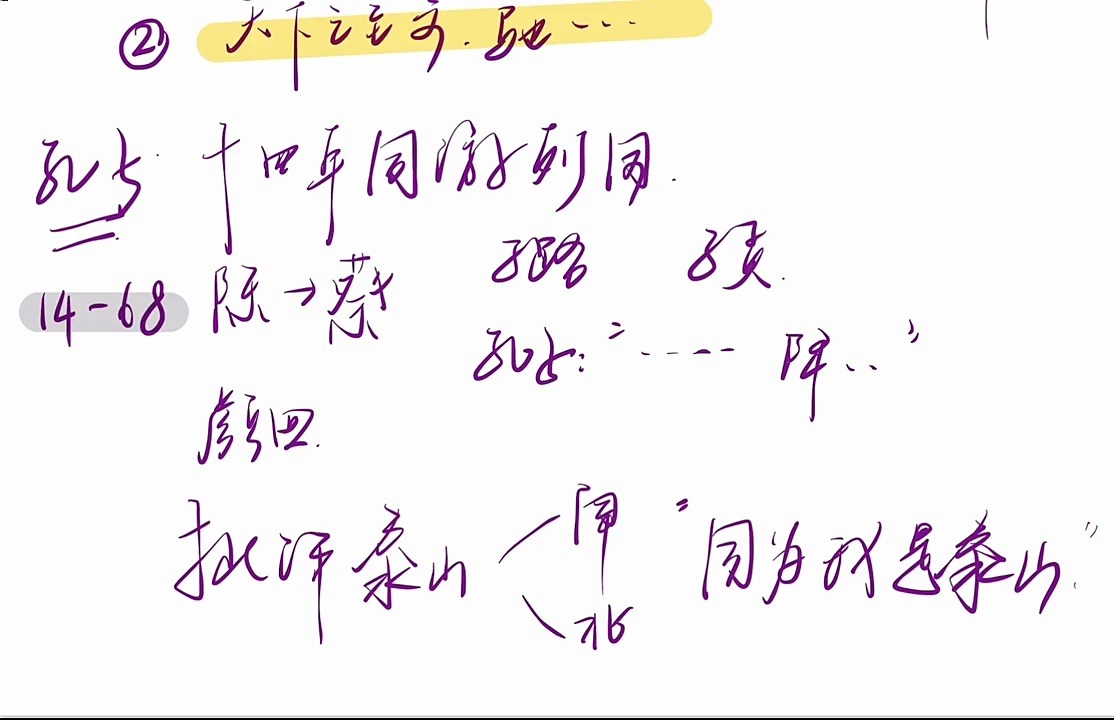 ② 天下之至柔.驰…
孔子 十四年周游列国.
子路 子贡.
14-68 陈→蔡
孔子:"…… 降.."
颜回.
批评泰山 "因为我是泰山"
北